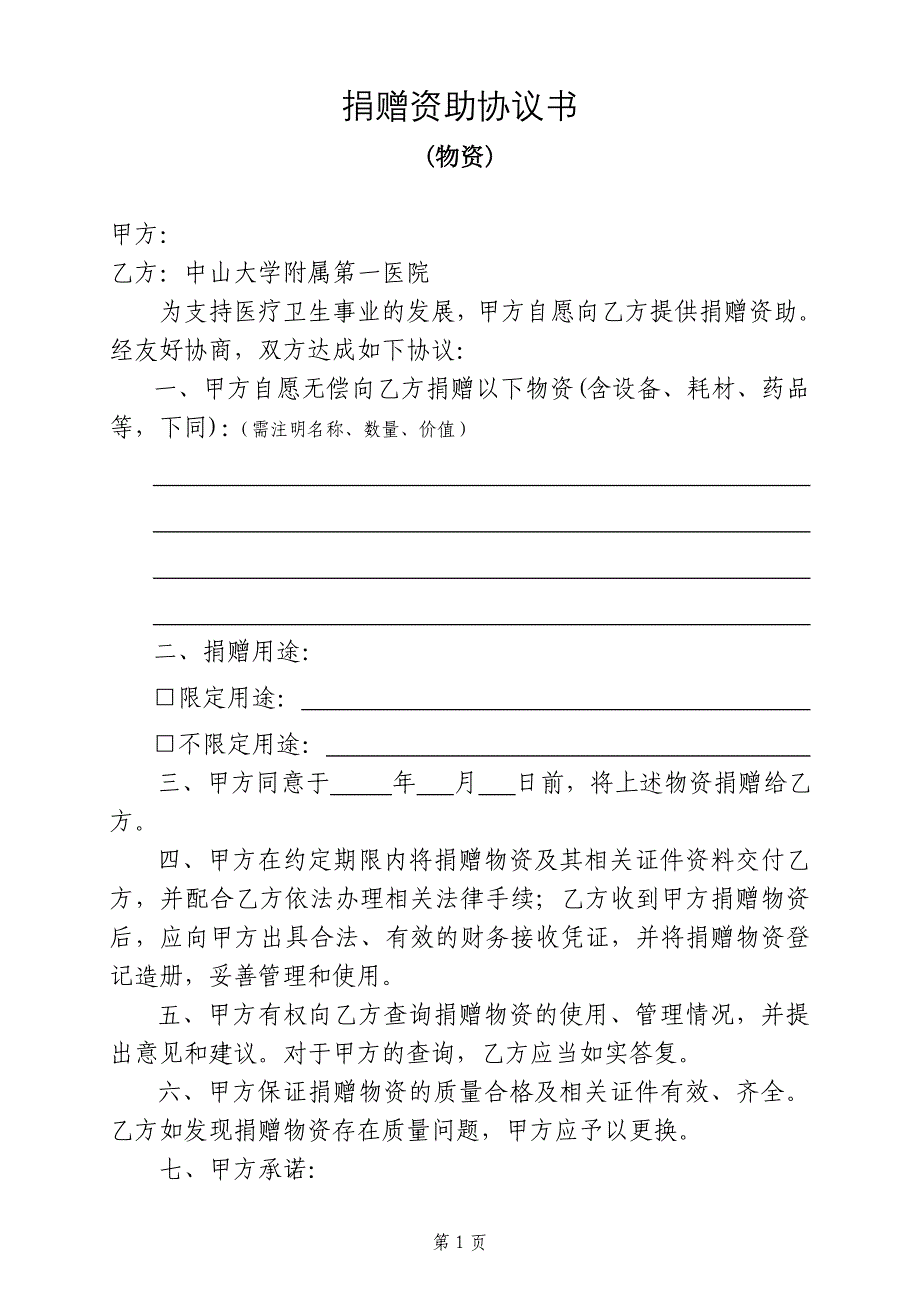 捐赠资助协议书
(物资)
甲方：
乙方：中山大学附属第一医院
为支持医疗卫生事业的发展，甲方自愿向乙方提供捐赠资助。
经友好协商，双方达成如下协议：
一、甲方自愿无偿向乙方捐赠以下物资(含设备、耗材、药品
等，下同)：（需注明名称、数量、价值）
二、捐赠用途：
□限定用途：
□不限定用途：
三、甲方同意于_____年___月___日前，将上述物资捐赠给乙
方。
四、甲方在约定期限内将捐赠物资及其相关证件资料交付乙
方，并配合乙方依法办理相关法律手续；乙方收到甲方捐赠物资
后，应向甲方出具合法、有效的财务接收凭证，并将捐赠物资登
记造册，妥善管理和使用。
五、甲方有权向乙方查询捐赠物资的使用、管理情况，并提
出意见和建议。对于甲方的查询，乙方应当如实答复。
六、甲方保证捐赠物资的质量合格及相关证件有效、齐全。
乙方如发现捐赠物资存在质量问题，甲方应予以更换。
七、甲方承诺：
第 1 页